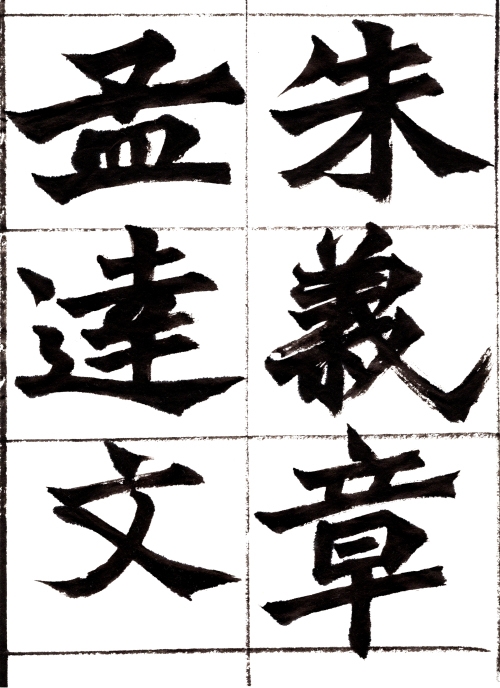 朱義章
孟達文